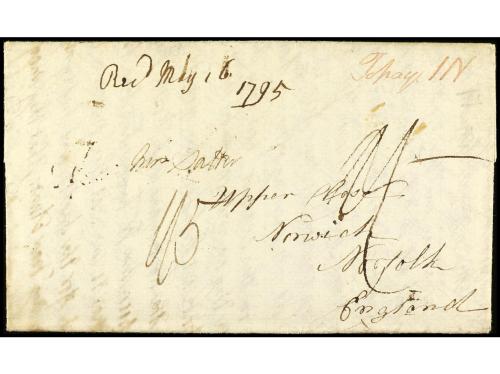 Recd May 16
1795
To pay 11N
Mrs
1/5
Upper Close
Norwich
Norfolk
England